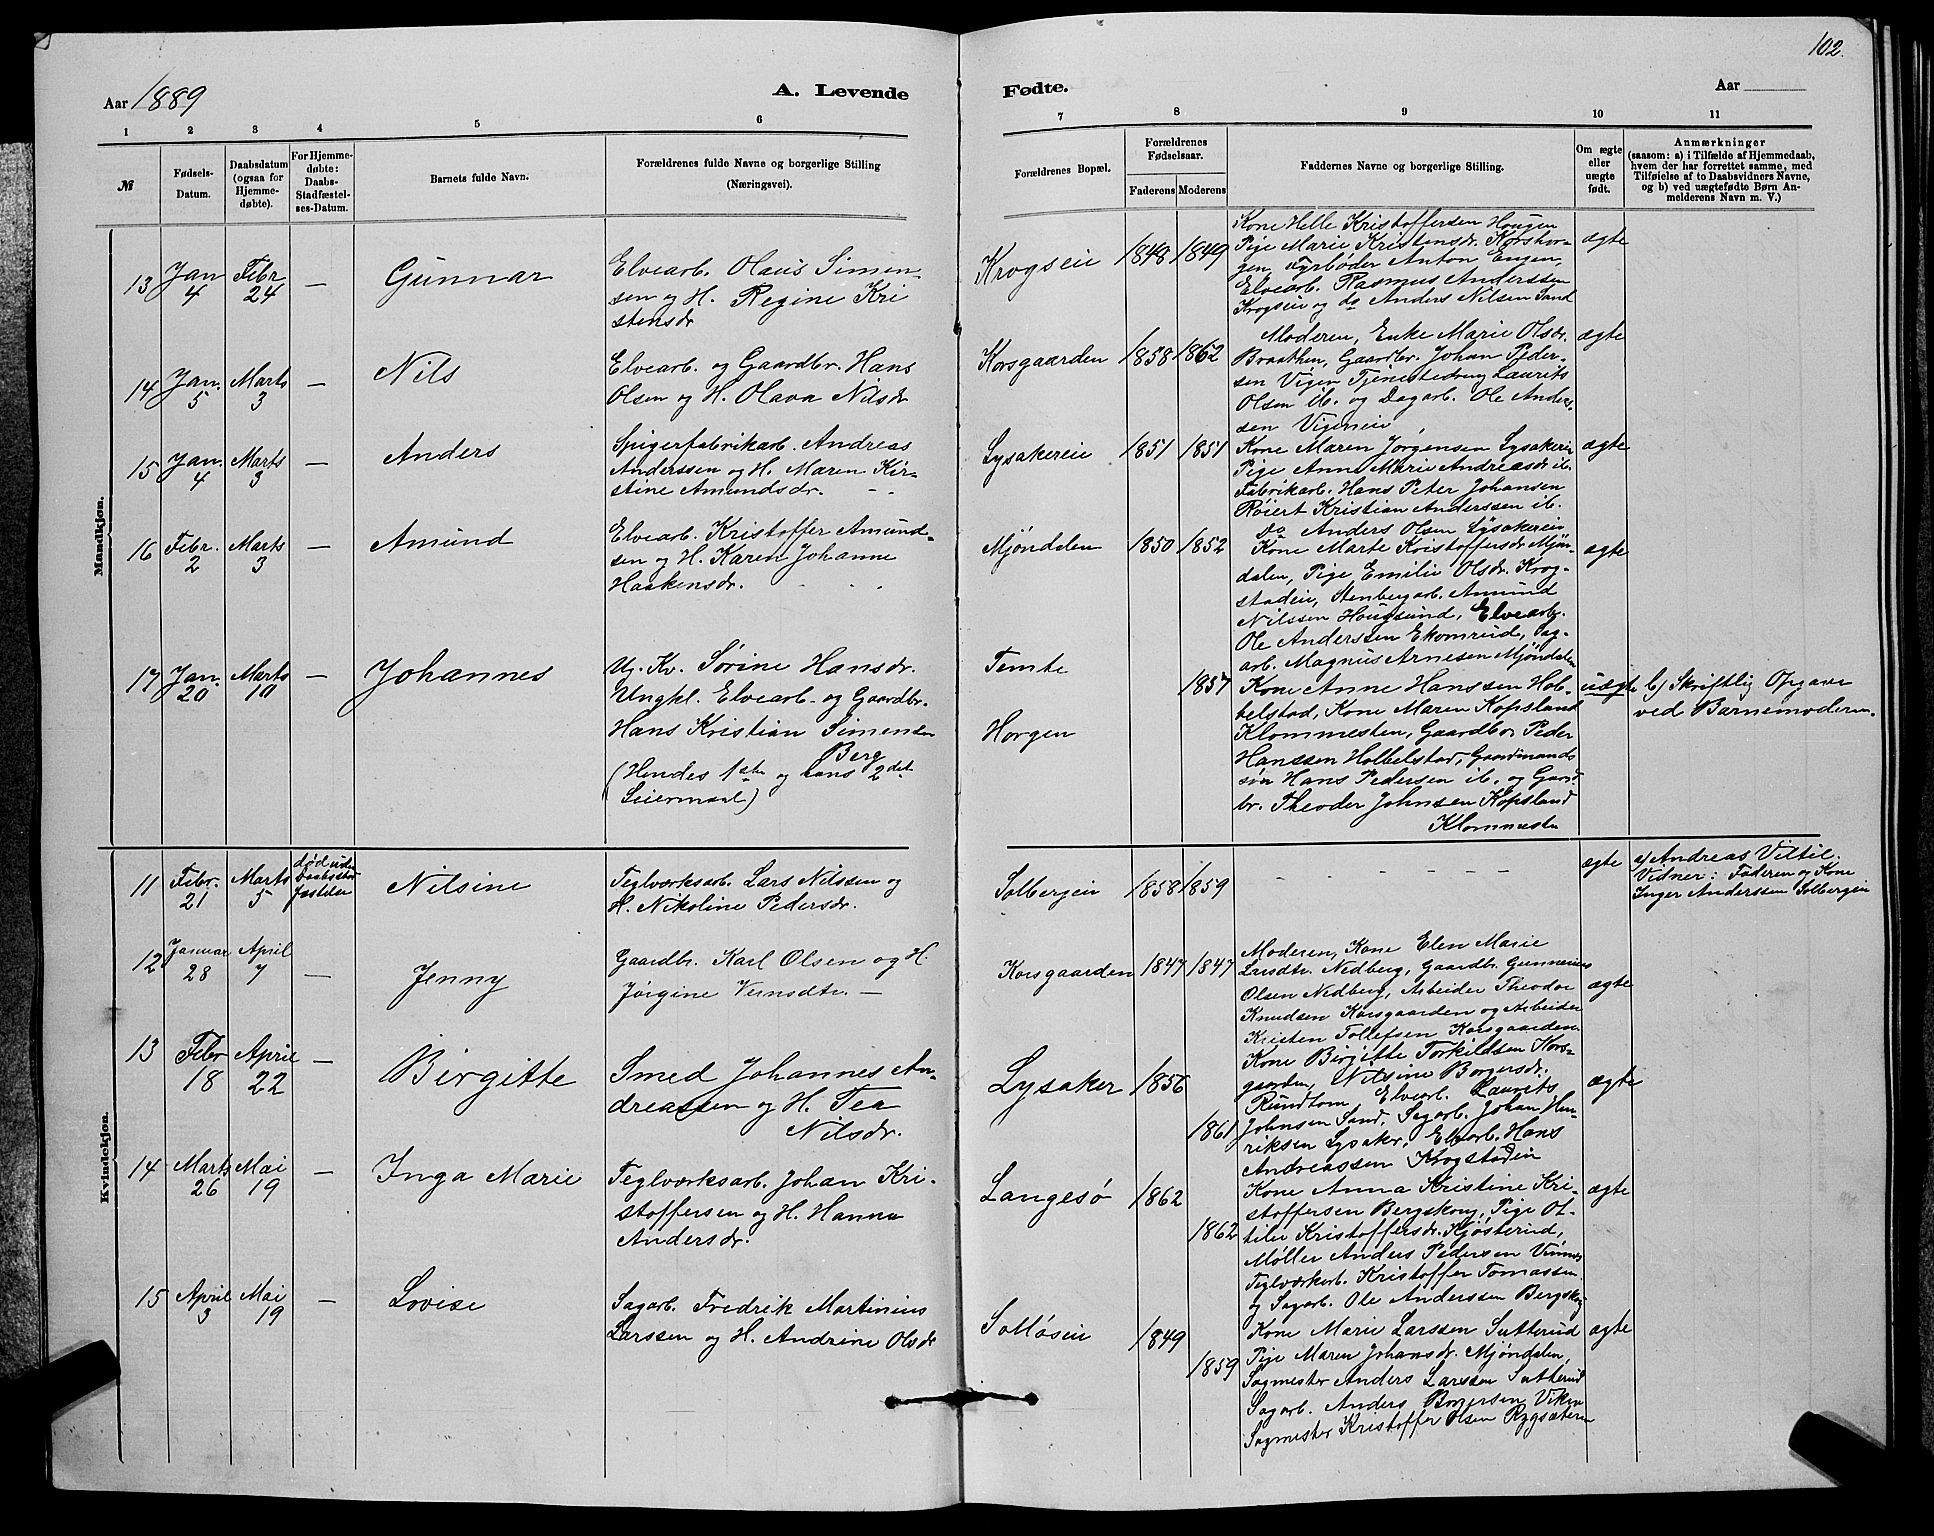 102.
Aar 1889
A. Levende
Fødte.
Aar
1 2 3 4 5 6 7 8 9 10 11
№
Fødsels-
Datum.
Daabsdatum
(ogsaa for
Hjemme-
døbte).
For Hjemme-
døbte:
Daabs-
Stadfæstel-
ses-Datum.
Barnets fulde Navn.
Forældrenes fulde Navne og borgerlige Stilling
(Næringsvei).
Forældrenes Bopæl.
Forældrenes
Fødselsaar.
Faderens Moderens
Faddernes Navne og borgerlige Stilling.
Om ægte
eller
uægte
født.
Anmærkninger
(saasom: a) i Tilfælde af Hjemmedaab,
hvem der har forrettet samme, med
Tilføielse af to Daabsvidners Navne,
og b) ved uægtefødte Børn An-
melderens Navn m. V.)
Mandkjøn.
13 Jan 4 Febr 24 — Gunnar
Elvearb. Olaus Simen-
sen og H. Regine Kri
stensdr
Krogseie 1848 1849
Kone Helle Kristoffersen Hougen
Pige Marie Kristensdr. Korshor-
gen, Fyrbøder Anton Engen,
Elvearb. Rasmus Anderssen
Krogseie og do Anders Nilsen Sand
ægte
14 Jan. 5 Marts 3 — Nils
Elvearb. og Gaardbr. Hans
Olsen og H. Olava Nilsdr
Korsgaarden 1858 1862
Moderen, Enke Marie Olsdr.
Braathen, Gaardbr. Johan Peder-
sen Vigen Tjenestedreng Laurits
Olsen ib. og Dagarb. Ole Ander-
sen Vigeneie
ægte
15 Jan. 4 Marts 3 — Anders
Spigerfabrikarb. Andreas
Anderssen og H. Maren Kir-
stine Amundsdr.
Lysakereie 1851 1851
Kone Maren Jørgensen Lysakerie
Pige Anne Marie Andreasdr ib.
Fabrikarb. Hans Peter Johansen
Røiert Kristian Anderssen ib.
do Anders Olsen Lysakereie
ægte
16 Febr. 2 Marts 3 — Amund
Elvearb. Kristoffer Amund-
sen og H. Karen Johanne
Haakensdr.
Mjøndalen 1850 1852
Kone Marte Kristoffersdr Mjøn-
dalen, Pige Emilie Olsdr. Krog-
stadeie, Stenbergarb. Amund
Nilssen Hougsund, Elvearb.
Ole Anderssen Ekornrud, Sag-
arb. Magnus Arnesen Mjøndalen
ægte
17 Jan. 20 Marts 10 — Johannes
Ug. Kv. Sørine Hansdr.
Ungkl. Elvearb. og Gaardbr.
Hans Kristian Simensen
Berg
(Hendes 1ste og hans 2det
Leiermaal)
Temte
Horgen
1857
Kone Anne Hanssen Hob-
belstad, Kone Maren Kopsland
Klommesten, Gaardbr Peder
Hanssen Hobbelstad, Gaardmands
søn Hans Pedersen ib. og Gaard
br. Theodor Johnsen Kopsland
Klommesten
uægte
b) Skriftlig Opgave
ved Barnemoderen.
Kvindekjøn.
11 Febr. 21 Marts 5
død uden
Daabsstad
fæstelse
Nilsine
Teglværksarb. Lars Nilssen og
H. Nikoline Pedersdr.
Solbergeie 1858 1859
— — — — — —
ægte
a) Andreas Viltil.
Vidner: Faderen og Kone
Inger Anderssen Solbergeie
12 Januar 28 April 7 — Jenny
Gaardbr. Karl Olsen og H.
Jørgine Vernsdtr. —
Korsgaarden 1847 1847
Moderen, Kone Elen Marie
Larsdtr. Nedberg, Gaardbr. Gunnerius
Olsen Nedberg, Arbeider Theodor
Knudsen Korsgaarden og Arbeider
Kristen Tollefsen Korsgaarden
ægte
13 Febr 18 April 22 — Birgitte
Smed Johannes An-
dreassen og H. Tea
Nilsdr.
Lysaker 1856 1861
Kone Birgitte Torkildsen Kors-
gaarden, Nilsine Borgersdr.
Rundtom, Elvearb. Laurits
Johnsen Sand, Sagarb. Johan Hen-
riksen Lysaker, Elvearb. Hans
Andreassen Krogstadeie
ægte
14 Marts 26 Mai 19 — Inga Marie
Teglværksarb. Johan Kri-
stoffersen og H. Hanna
Andersdr.
Langesø 1862 1862
Kone Anna Kristine Kri-
stoffersen Bergskoug, Pige Ot-
tilie Kristoffersdr. Kjøsterud,
Møller Anders Pedersen Vinnes
Teglværkarb. Kristoffer Tomassen
og Sagarb. Ole Anderssen Bergskoug
ægte
15 April 3 Mai 19 — Lovise
Sagarb. Fredrik Martinius
Larssen og H. Andrine Olsdr
Solløseie 1849 1859
Kone Marie Larssen Sutterud
Pige Maren Johansdr. Mjøndalen,
Sagmester Anders Larssen Sutterud
Sagarb. Anders Borgersen Viken
Sagmester Kristoffer Olsen Rygsæteren
ægte